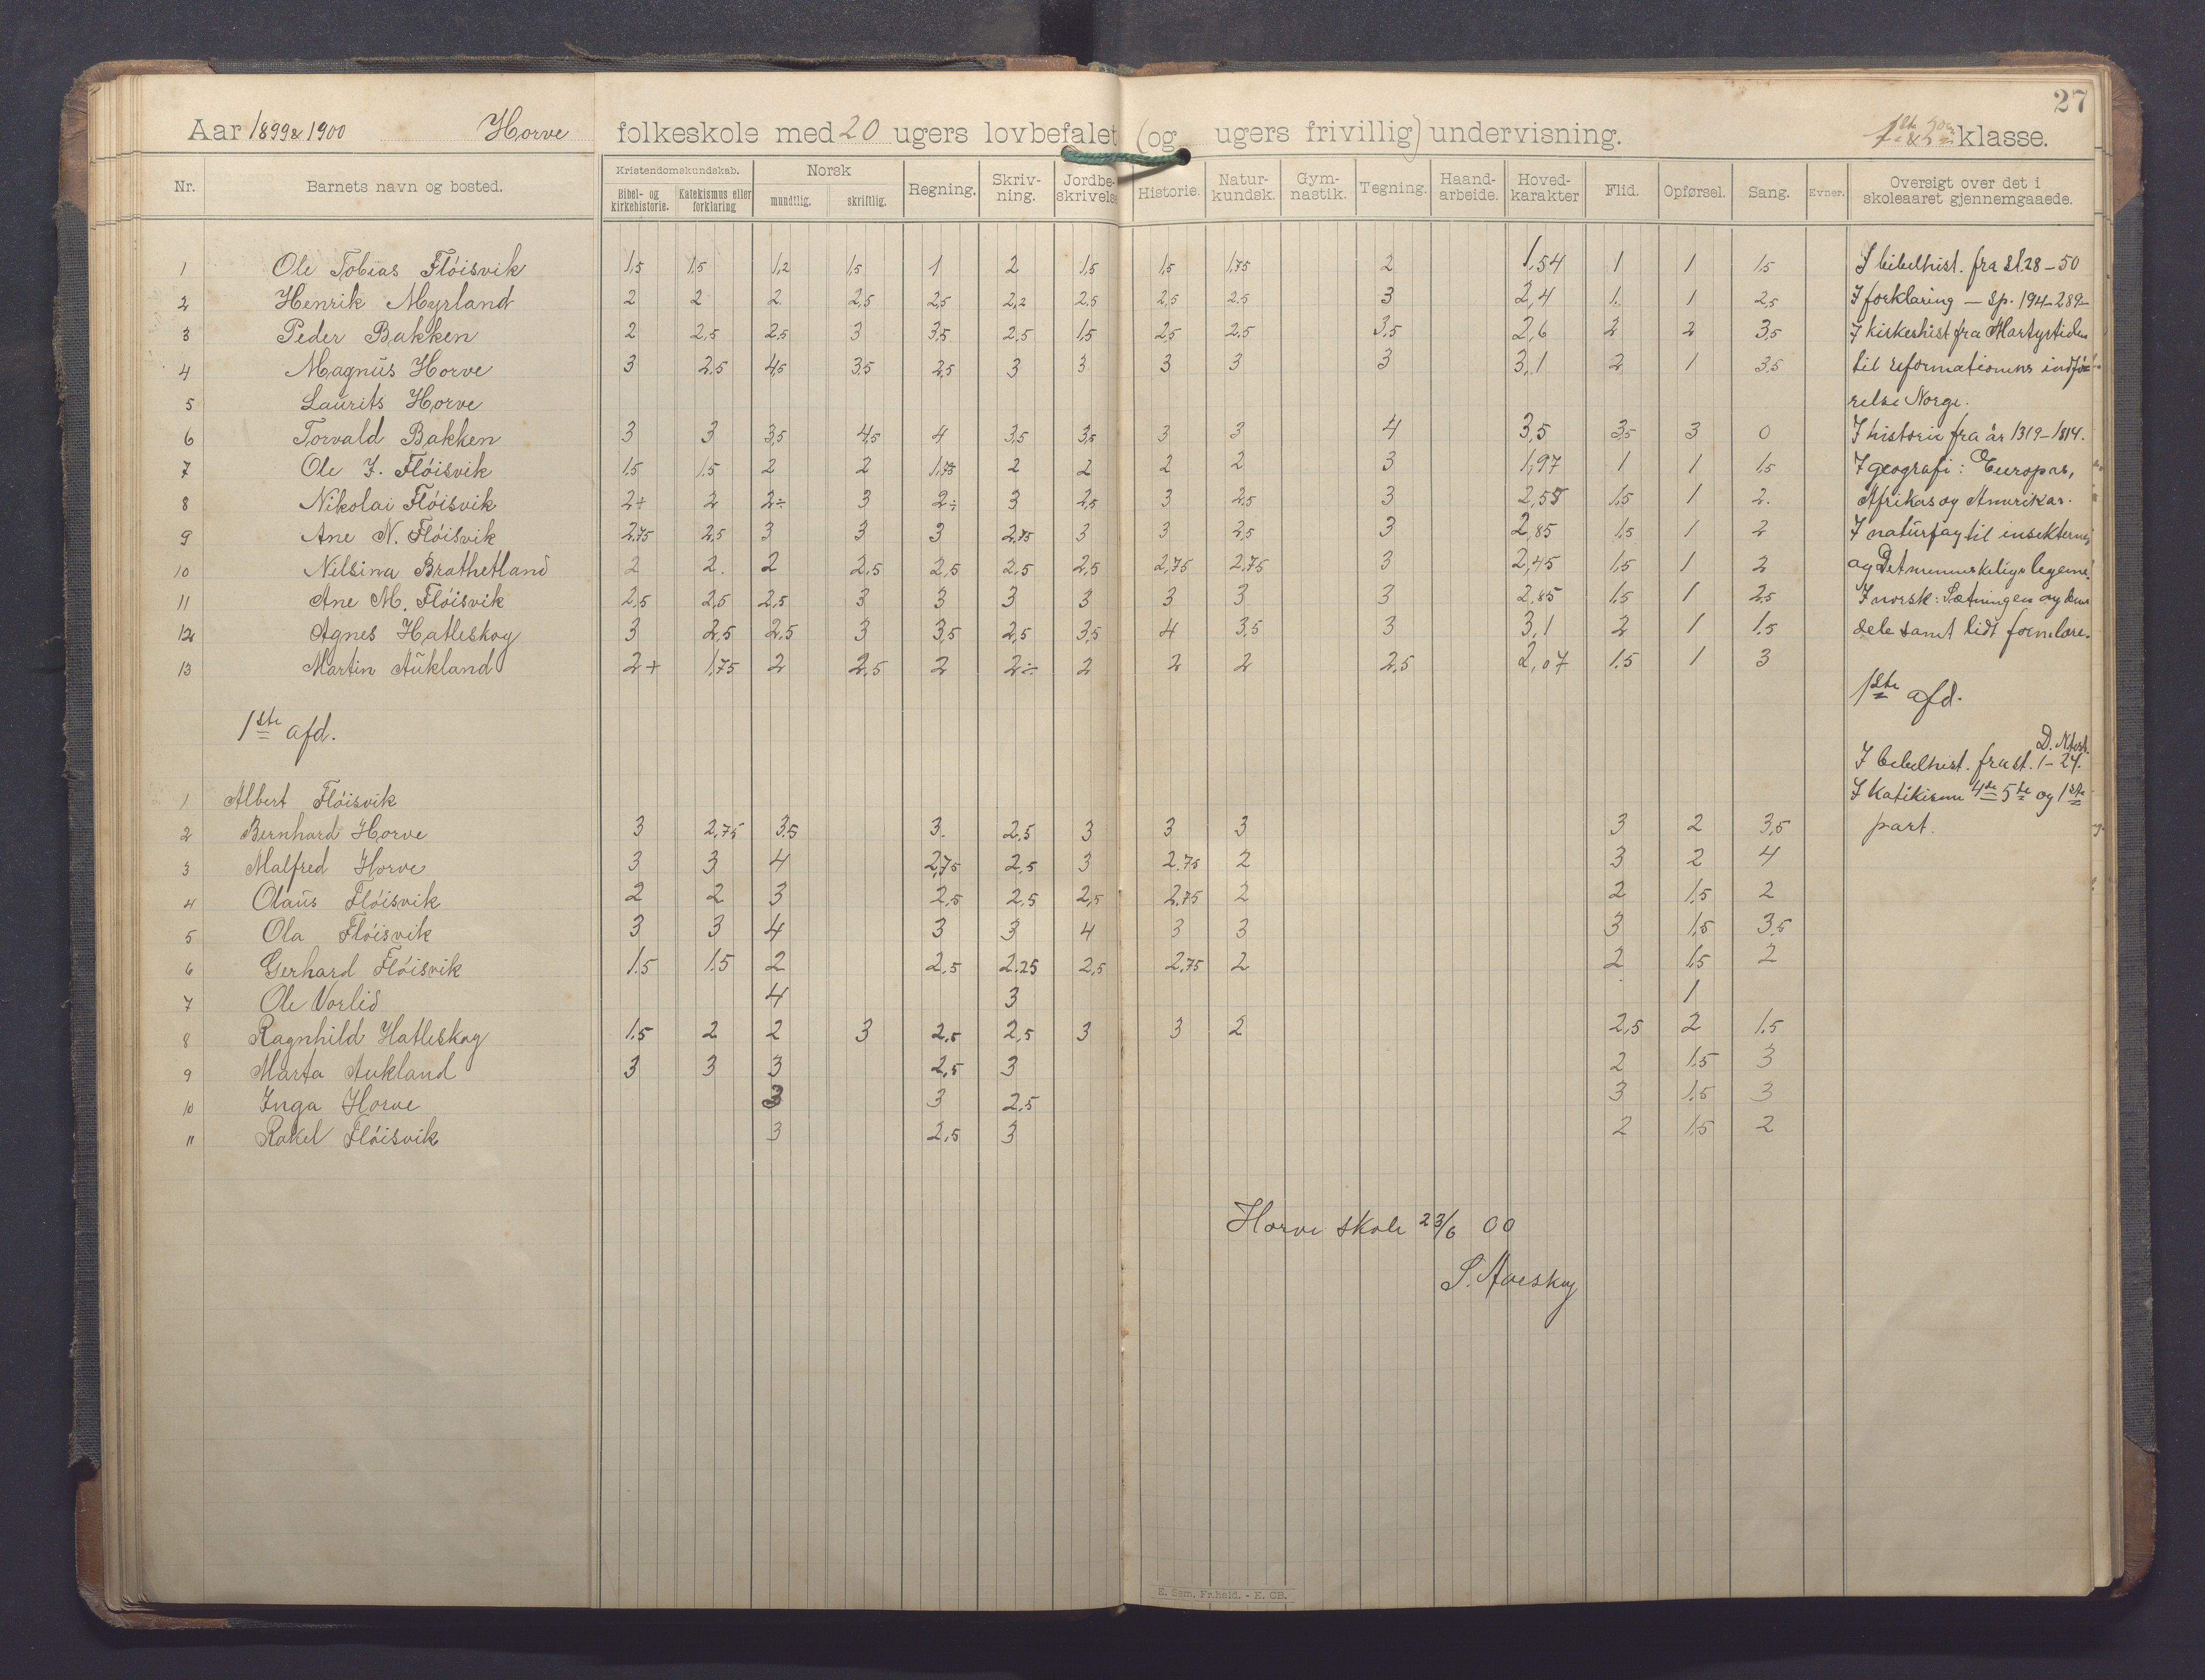 27
Aar 1899 & 1900 Horve folkeskole med 20 ugers lovbefalet (og ugers frivillig) undervisning. klasse.
Nr. Barnets navn og bosted. Kristendomskundskab. Norsk Regning. Skriv-ning. Jordbe-skrivelse Historie. Natur-kundsk. Gym-nastik. Tegning. Haand-arbeide. Hoved-karakter Flid. Opførsel. Sang. Evner. Oversigt over det i skoleaaret gjennemgaaede.
Bibel- og kirkehistorie. Katekismus eller forklaring mundtlig. skriftlig.
1 Ole Tobias Flöisvik 1,5 1,5 1,2 1,5 1 2 1,5 1,5 1,75 2 1,54 1 1 1,5 I bibelhist. fra St. 28-50
2 Henrik Myrland 2 2 2 2,5 2,5 2,2 2,5 2,5 2,5 3 2,4 1. 1 2,5 I forklaring - Sp. 194-289-
3 Peder Bakken 2 2,5 2,5 3 3,5 2,5 1,5 2,5 2,5 3,5 2,6 2 2 3,5 I kirkehist fra Martyrtiden
4 Magnus Horve 3 2,5 4,5 3,5 2,5 3 3 3 3 3 3,1 2 1 3,5 til reformationens indfö-
5 Laurits Horve relse i Norge.
6 Torvald Bakken 3 3 3,5 4,5 4 3,5 3,5 3 3 4 3,5 3,5 3 0 I historie fra år 1319-1814.
7 Ole J. Flöisvik 1,5 1,5 2 2 1,75 2 2 2 2 3 1,97 1 1 1,5 I geografi: Europas,
8 Nikolai Flöisvik 2+ 2 2÷ 3 2÷ 3 2,5 3 2,5 3 2,58 1,5 1 2. Afrikas og Amerikas.
9 Ane N. Flöisvik 2,75 2,5 3 3 3 2,75 3 3 2,5 3 2,85 1,5 1 2 I naturfag til insekterne
10 Nilsina Brathetland 2 2. 2 2,5 2,5 2,5 2,5 2,75 2,75 3 2,45 1,5 1 2 og Det menneskelige legeme.
11 Ane M. Flöisvik 2,5 2,5 2,5 3 3 3 3 3 3 3 2,85 1,5 1 2,5 I norsk: Sætningen og dens
12 Agnes Hatleskog 3 2,5 2,5 3 3,5 2,5 3,5 4 3,5 3 3,1 2 1 1.5 dele samt lidt formlære.
13 Martin Aukland 2+ 1,75 2 2,5 2 2÷ 2 2 2 2,5 2,07 1.5 1 3
1ste afd.
1ste afd.
D. N. test.
I bibelhist. fra st. 1-24.
1 Albert Flöisvik I Katekisme 4de 5te og 1ste
2 Bernhard Horve 3 2,75 3.5 3. 2.5 3 3 3 3 2 3,5 part.
3 Malfred Horve 3 3 4 2,75 2.5 3 2.75 2 3 2 4
4 Olaus Flöisvik 2 2 3 2,5 2,5 2,5 2,75 2 2 1,5 2
5 Ola Flöisvik 3 3 4 3 3 4 3 3 3 1,5 3,5
6 Gerhard Flöisvik 1.5 1.5 2 2,5 2.25 2,5 2,75 2 2 1,5 2
7 Ole Vorlid 4 3 1
8 Ragnhild Hatleskog 1.5 2 2 3 2,5 2,5 3 3 2 2,5 2 1.5
9 Marta Aukland 3 3 3 2,5 3 2 1.5 3
10 Inga Horve 3 3 2.5 3 1.5 3
11 Rakel Flöisvik 3 2,5 3 2 1,5 2
Horve skole 23/6 00